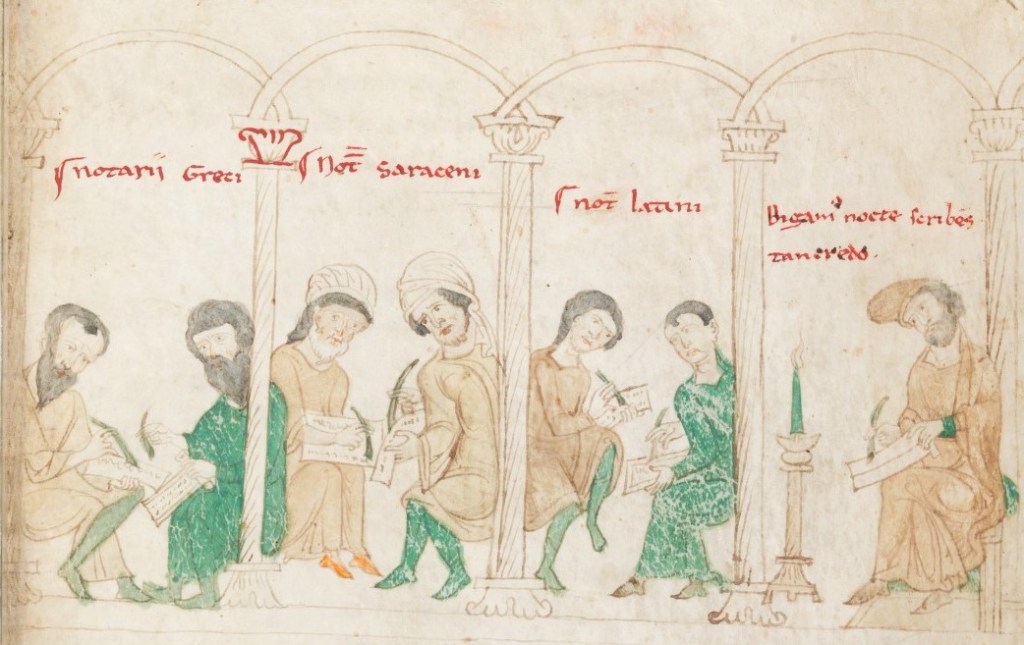 notarii Greci
Not̄ Saraceni
not̄ latini
Bigam' nocte scribēs
tancredo.